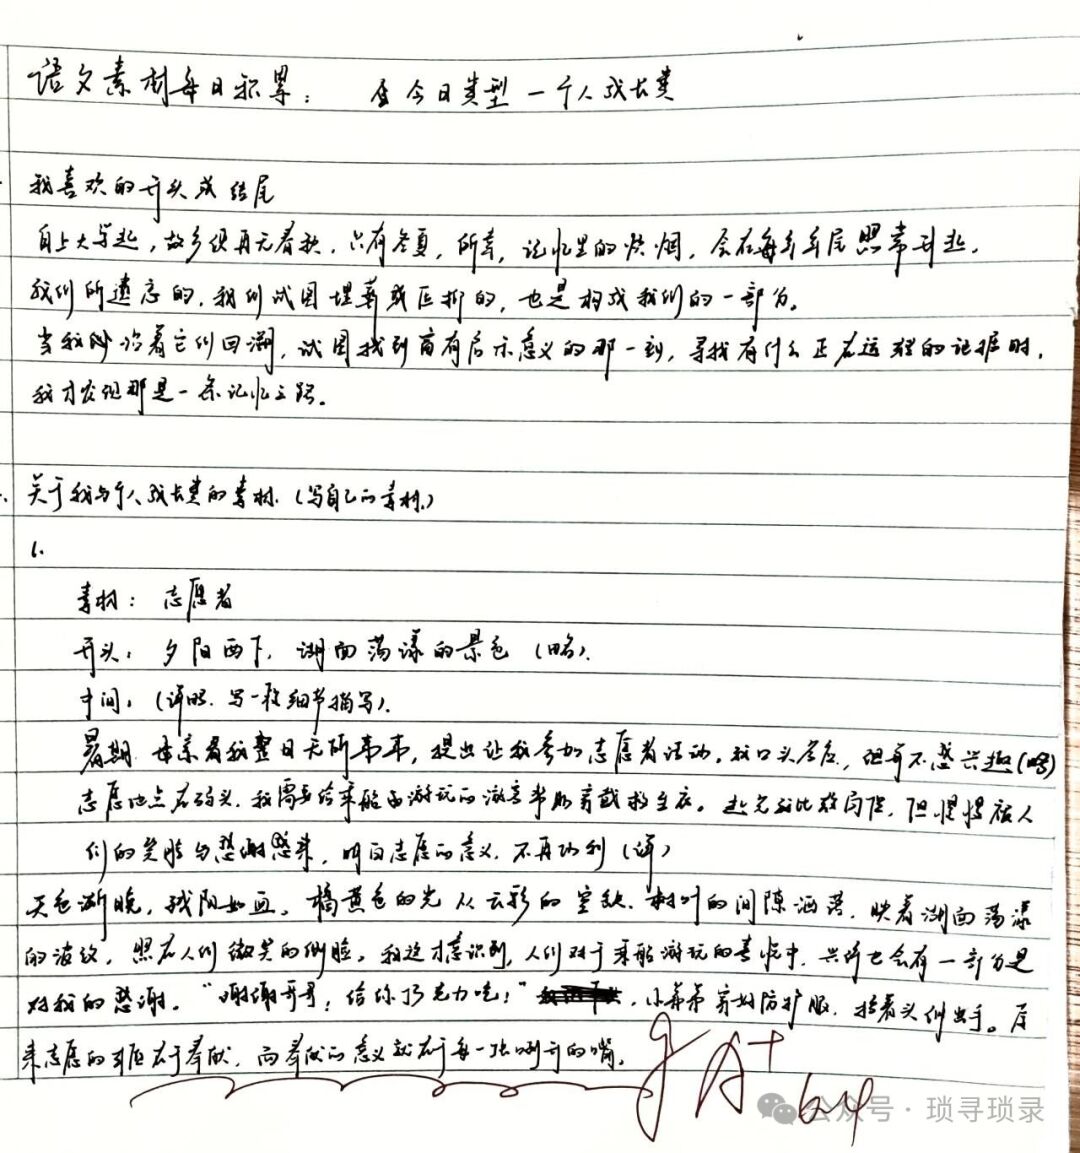 语文素材每日积累： 今日类型—个人成长类
我喜欢的开头或结尾
自上大学起，故乡便再无春秋，只有冬夏，所幸，记忆里的炊烟，会在每年年尾照常升起。
我们所遗忘的，我们试图埋葬或压抑的，也是构成我们的一部分。
当我们沿着它们回溯，试图找到富有启示意义的那一刻，寻找有什么正在远程的证据时，
我才发现那是一条记忆之路。
关于我与个人成长类的素材.（写自己的素材）
1.
素材：志愿者
开头：夕阳西下，湖面荡漾的景色（略）.
中间：（详略.写一段细节描写）.
暑期.母亲看我整日无所事事，提出让我参加志愿者活动。我口头答应，但并不感兴趣（略）
志愿地点在码头，我需要给乘船游玩的游客帮助穿戴救生衣。起先我比较局促，但慢慢被人
们的笑脸与感谢感染，明白志愿的意义.不再功利（详）
天色渐晚，残阳如血。橘黄色的光从云彩的空缺.树叶的间隙洒落，映着湖面荡漾
的波纹，照在人们微笑的侧脸。我这才意识到，人们对于乘船游玩的喜悦中，兴许也会有一部分是
对我的感谢。“谢谢哥哥，给你巧克力吃！” ，小弟弟穿好防护服，抬着头伸出手。原
来志愿的 在于奉献，而奉献的意义就在于每一张咧开的嘴。
A+
公众号·琐寻琐录